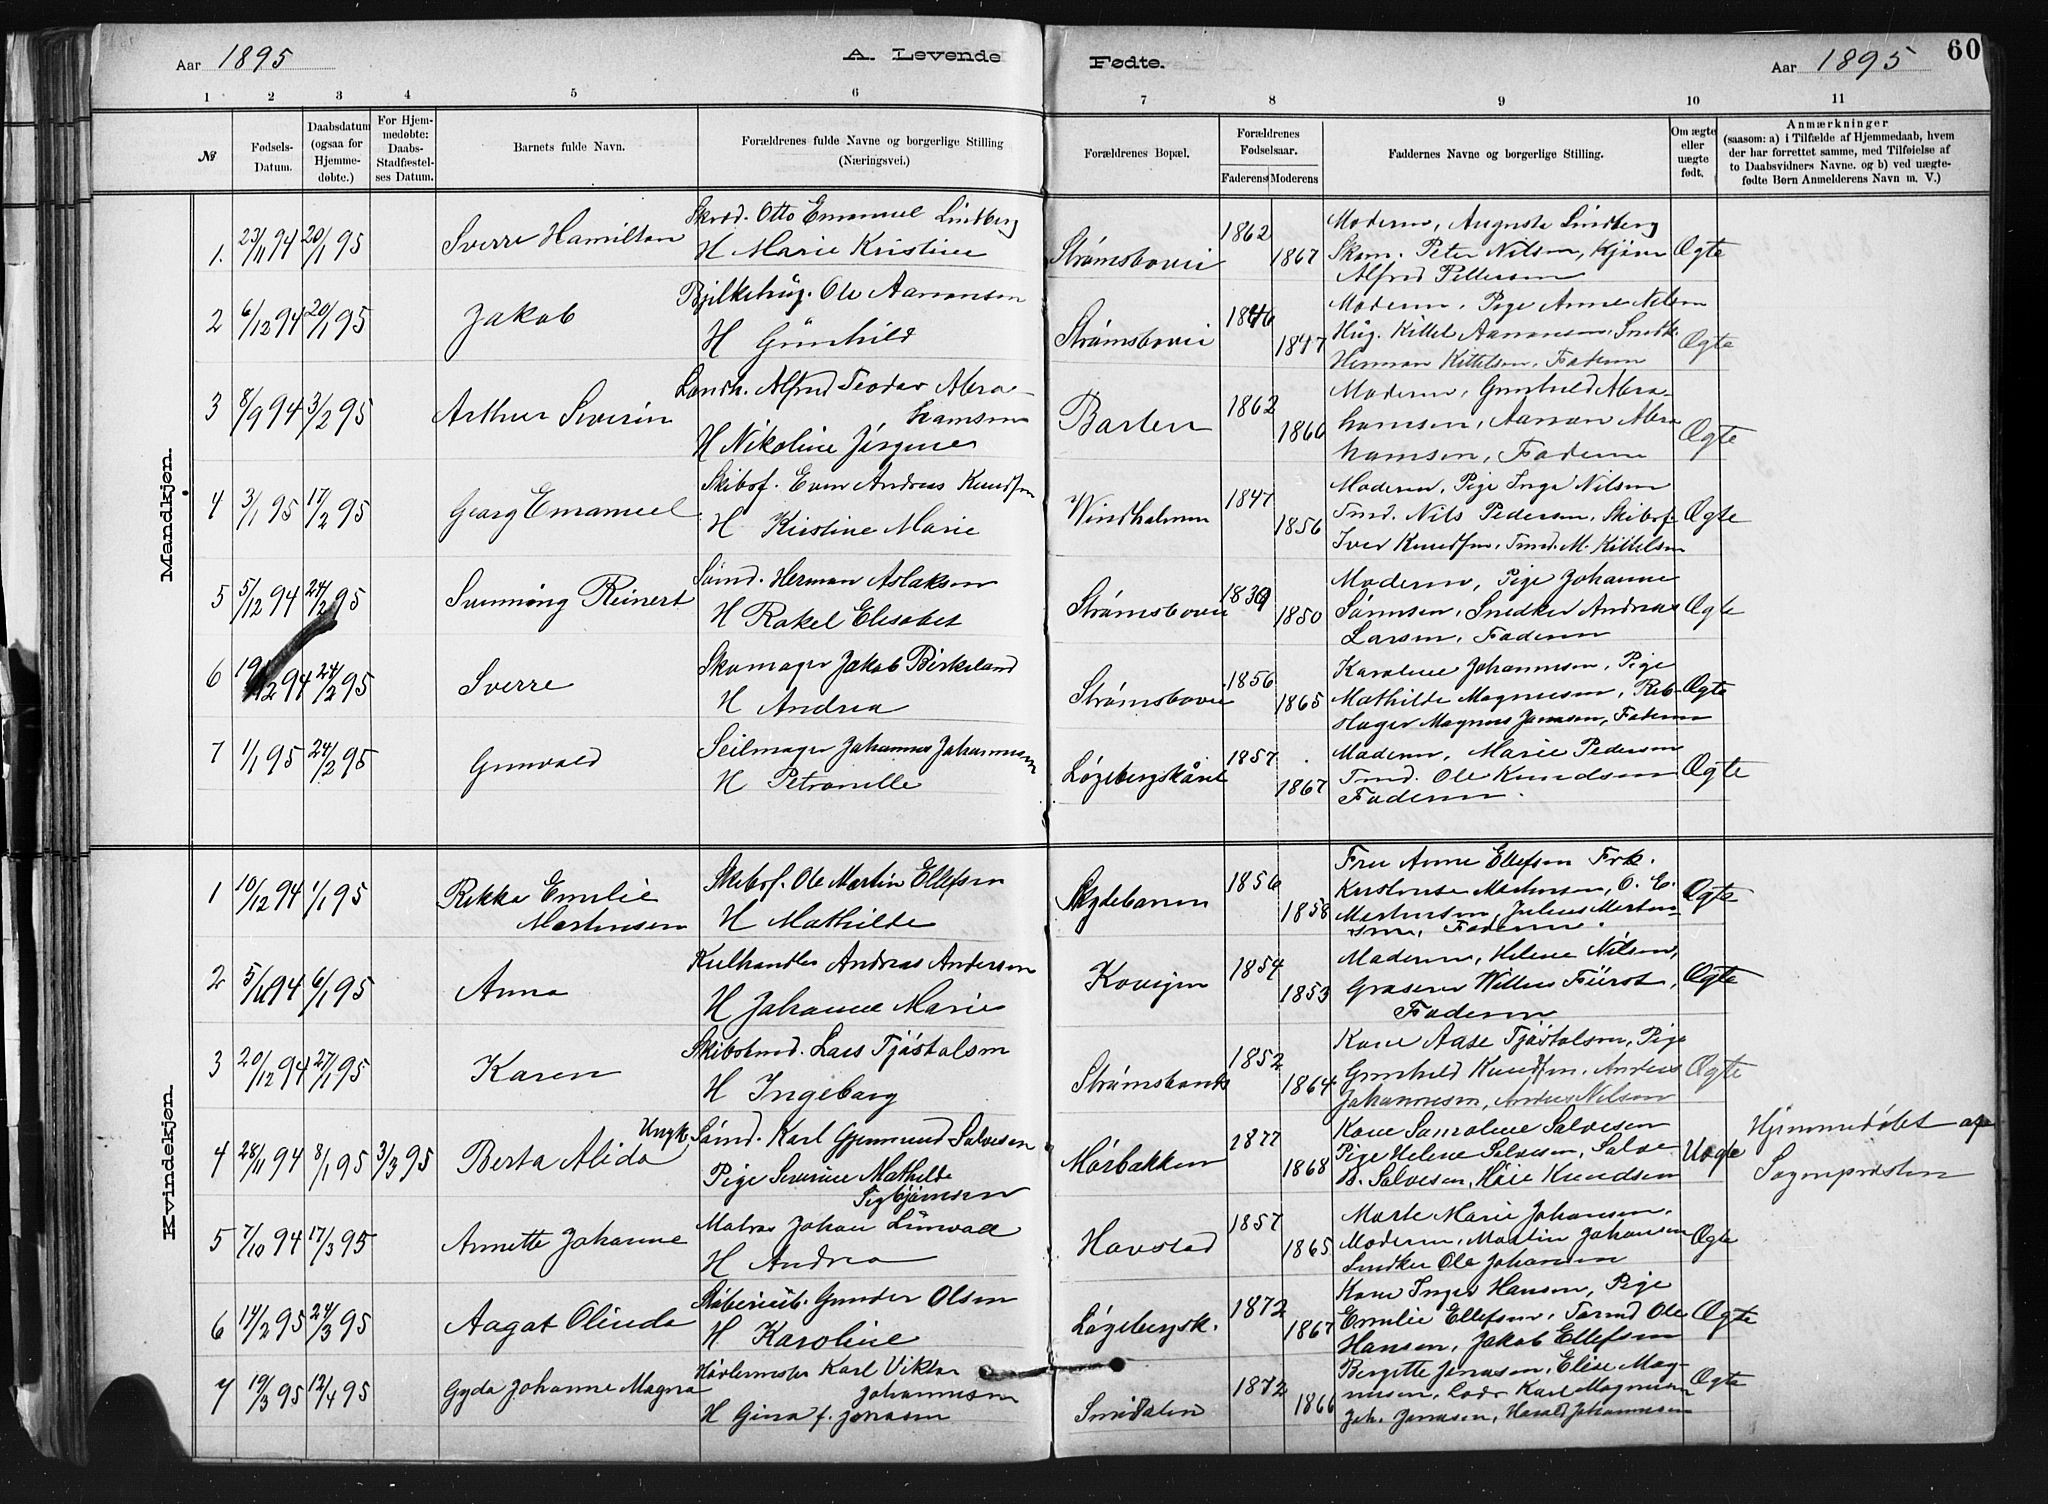 Aar 1895
A. Levende Fødte.
Aar 1895
60
1 2 3 4 5 6 7 8 9 10 11
№
Fødsels-Datum.
Daabsdatum (ogsaa for Hjemmedøbte.)
For Hjemmedøbte: Daabs-Stadfæstelses Datum.
Barnets fulde Navn.
Forældrenes fulde Navne og borgerlige Stilling (Næringsvei.)
Forældrenes Bopæl.
Forældrenes Fødselsaar.
Faderens Moderens
Faddernes Navne og borgerlige Stilling.
Om ægte eller uægte født.
Anmærkninger (saasom: a) i Tilfælde af Hjemmedaab, hvem der har forrettet samme, med Tilføielse af to Daabsvidners Navne. og b) ved uægtefødte Børn Anmelderens Navn m. V.)
Mandkjøn.
1. 23/11 94 20/1 95 Sverre Hamilton
Skræd. Otto Emanuel Lindberg
H Marie Kristine
Strømsbovei 1862 1867
Moderen, Auguste Lindberg
Skom. Peter Nilsen, Kjøbm
Alfred Pettersen
Ægte
2 6/12 94 20/1 95 Jakob
Bjelkehug. Ole Aanonsen
H Gunhild
Strømsbovei 1846 1847
Moderen, Pige Anne Nilsen
Hug. Kittel Aanonsen, Snedk.
Herman Kittelsen, Faderen
Ægte
3 8/9 94 3/2 95 Arthur Severin
Landh. Alfred Teodor Abrahamsen
H Nikoline Jørgine
Barlen 1862 1860
Moderen, Gunhild Abrahamsen, Aanon Abrahamsen, Faderen
Ægte
4 3/1 95 17/2 95 Georg Emanuel
Skibsf. Even Andreas Knudsen
H Kristine Marie
Windholmen 1847 1856
Moderen, Pige Inga Nilsen
Tmd. Nils Pedersen, Skibsf.
Iver Knudsen, Tmd. M. Kittelsen
Ægte
5 5/12 94 24/2 95 Svenning Reinert
Sømd. Herman Aslaksen
H Rakel Elisabet
Strømsbovei 1839 1850
Moderen, Pige Johanne
Sørensen, Snedker Andreas
Larsen, Faderen
Ægte
6 19/12 94 24/2 95 Sverre
Skomager Jakob Birkeland
H Andrea
Strømsbovei 1856 1865
Karoline Johannesen, Pige
Mathilde Magnusen, Rebslager Magnus Jensen, Faderen
Ægte
7 1/1 95 24/2 95 Gunvald
Seilmager Johannes Johannesen
H Petronille
Løgebergskåret 1857 1867
Moderen, Marie Pedersen
Tmd. Ole Knudsen
Faderen.
Ægte
Kvindekjøn.
1 10/12 94 1/1 95 Rikka Emilie Martinsen
Skibsf. Ole Martin Ellefsen
H Mathilde
Skydebanen 1856 1858
Fru Anne Ellefsen Frk.
Kristense Martinsen, O. E.
Martinsen, Julius Martinsen, Faderen.
Ægte
2 5/11 94 6/1 95 Anna
Kulhandler Andreas Andersen
H Johanne Marie
Kovigen 1854 1853
Moderen, Helene Nilsen,
Graserer Willum Fürst,
Faderen
Ægte
3 20/12 94 27/1 95 Karen
Skibstmd. Lars Tjøstolsen
H Ingeborg
1852 1864
Kone Aase Tjøstolsen, Pige
Gunhild Knudsen, Anders
Johannesen, Anders Nilsen
Ægte
4 28/11 94 8/1 95 3/3 95 Berta Alida
Ungk. Sømd. Karl Gjermund Salvesen
Pige Severine Mathilde Sigbjørnsen
Mørbakken 1877 1868
Kone Samoline Salvesen
Pige Helene Salvesen, Salve
B. Salvesen, Kaie Knudsen
Uægte
Hjemmedøbt af
Sogneprästen
5 7/10 94 17/3 95 Annette Johanne
Matros Johan Lunvall
H Andrea
Havstad 1857 1865
Marte Marie Johansen,
Moderen, Martin Johansen
Snedker Ole Johansen
Ægte
6 14/2 95 24/3 95 Aagot Olinda
Gunder Olsen
H Karoline
Løgebergsk. 1872 1867
Kone Inger Hansen, Pige
Emilie Ellefsen, Tømd Ole
Hansen, Jakob Ellefsen
Ægte
7 19/3 95 12/4 95 Gyda Johanne Magna
Karl Viktor Johannesen
H Gina f. Jonasen
Smedalen 1872 1866
Bergitte Jonasen, Elise Magnusen, Lods Karl Magnusen
Joh. Jonasen, Harald Johannesen
Ægte